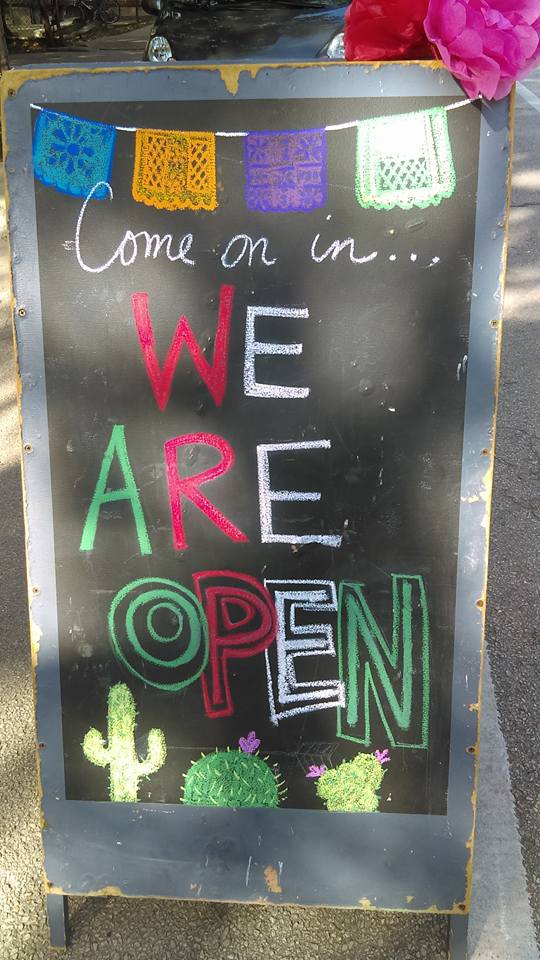 Come on in...
WE
ARE
OPEN